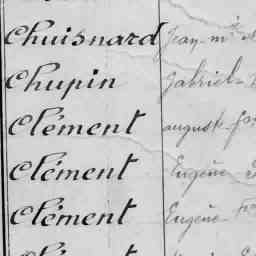 Chuisnard Jean-Mie
Chupin Gabriel-
Clément auguste
Clément Eugène
Clément Eugène